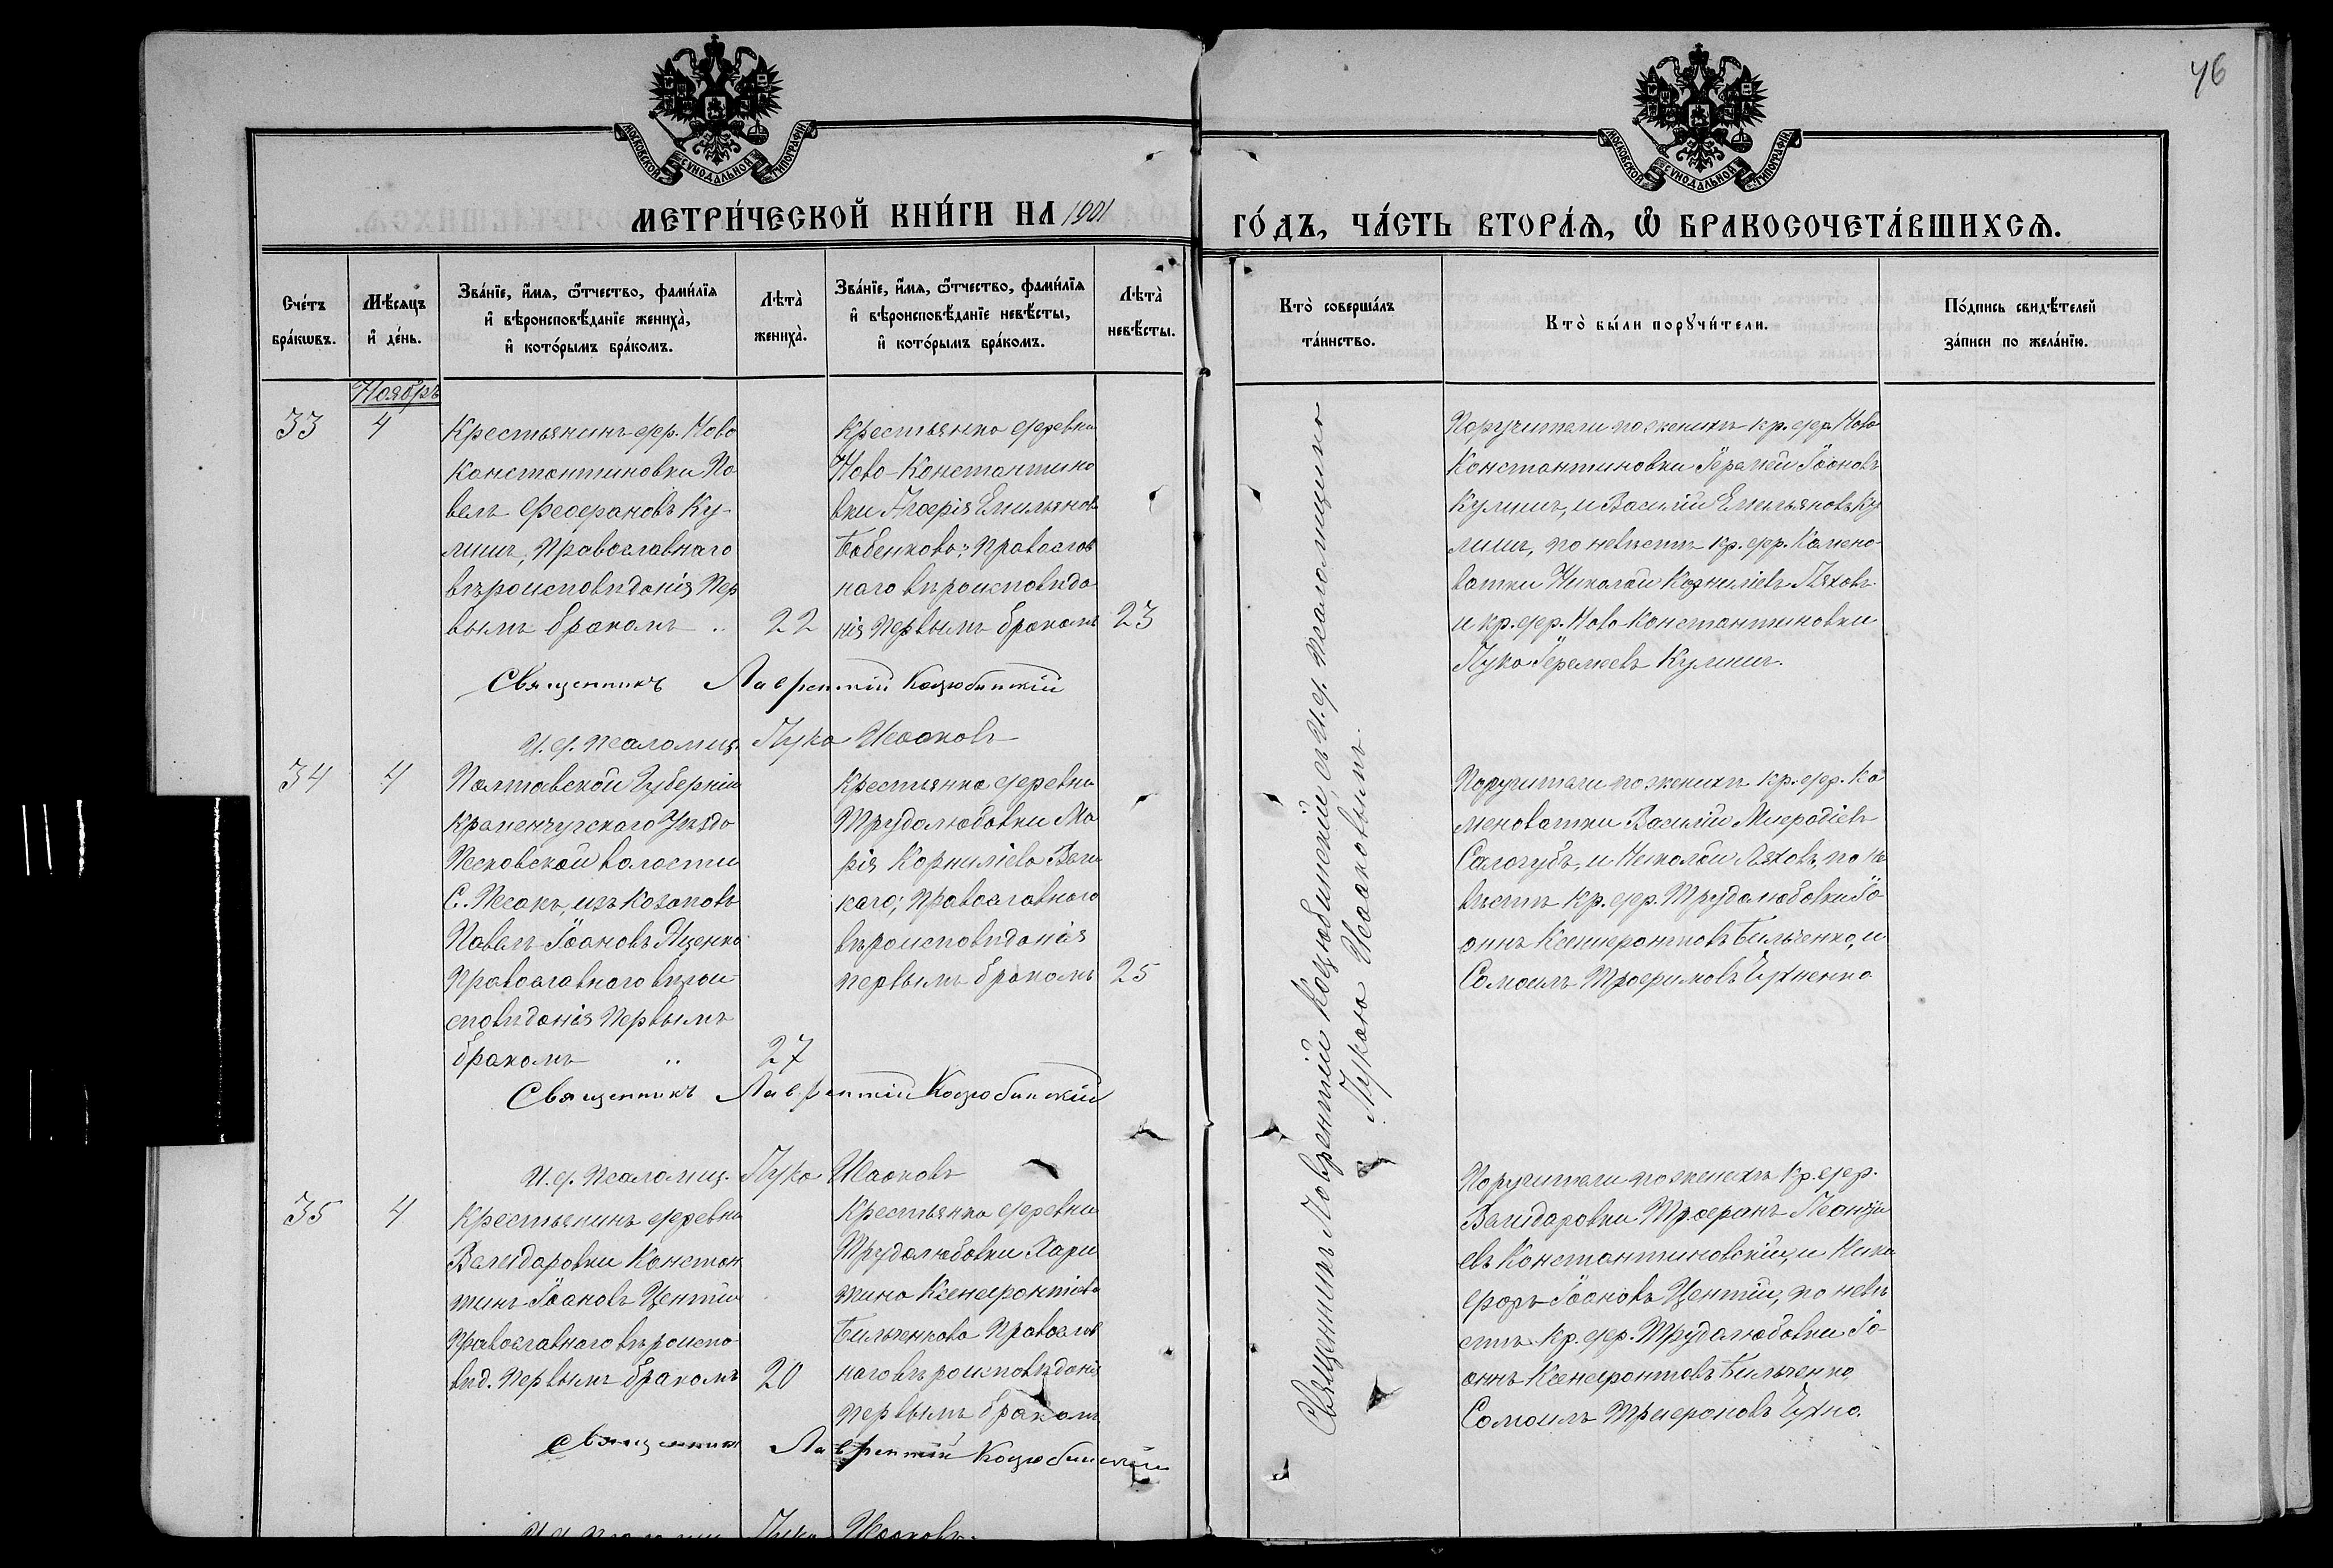 46
МОСКОВСКОЙ СѴНОДАЛЬНОЙ ТИПОГРАФІИ
МОСКОВСКОЙ СѴНОДАЛЬНОЙ ТИПОГРАФІИ
МЕТРИ́ЧЕСКОЙ КНИ́ГИ НА 1901 ГО́ДЪ, ЧА́СТЬ ВТОРА́Ѧ, Ѽ БРАКОСОЧЕТА́ВШИХСѦ.
Сче́тъ бра́кѡвъ.
Мѣ́сяцъ и҆ де́нь.
Зва́нїе, и҆́мя, ѻ҆́тчество, фами́лїя
и҆ вѣроисповѣ́данїе жениха̀,
и҆ кото́рымъ бра́комъ.
Лѣта̀ жениха̀.
Зва́нїе, и҆́мя, ѻ҆́тчество, фами́лїя
и҆ вѣроисповѣ́данїе невѣ́сты,
и҆ кото́рымъ бра́комъ.
Лѣта̀ невѣ́сты.
Кто̀ соверша́лъ
та́инство.
Кто̀ бы́ли порꙋчи́тели.
По́дпись свидѣ́телей
за́писи по жела́нїю.
Ноябрь
33
4
Крестьянинъ дер. Ново
Константиновки Па
велъ Феофановъ Ку-
лишъ, Православнаго
вѣроисповѣданія Пер
вымъ бракомъ
22
Крестьянка деревни
Ново-Константино
вки Емильянов
Бабенкова; Православ
наго вѣроисповѣда
нія Первымъ бракомъ
23
Поручители по женихѣ кр. дер. Ново
Константиновки Іеремій Іоановъ
Кулишъ, и Василій Емильяновъ Ку
лишъ, по невѣстѣ кр. дер. Камено-
ватки Николай Корниліевъ Ляховъ
и кр. дер. Ново Константиновки
Лука Іереміевъ Кулишъ.
Священникъ Лаврентій Коцюбинскій
И. д. псаломщ. Лука Исаковъ
34
4
Полтавской Губерніи
Кременчугскаго Уѣзда
Песковской волости
С. Песокъ, изъ козаковъ
Павелъ Іоановъ Яценко
Православнаго вѣрои
сповѣданія Первымъ
бракомъ
27
Крестьянка деревни
Трудолюбовки Ма
рія Корниліева
Православнаго
вѣроисповѣданія
первымъ бракомъ
25
Поручители по женихѣ кр. дер. Ка
меноватки Василій Мефодіевъ
Салогубъ, и Николай Ляховъ, по не
вѣстѣ кр. дер. Трудолюбовки Іо
аннъ Ксенофонтовъ Бильченко, и
Самоилъ Трофимовъ
Священникъ Лаврентій Коцюбинскій
И. д. Псаломщ. Лука Исаковъ
35
4
Крестьянинъ деревни
Константи
тинъ Іоановъ Центій
Православнаго вѣроиспо
вѣд. Первымъ бракомъ
20
Крестьянка деревни
Трудолюбовки Хари
тина Ксенофонтіева
Бильченкова Православ
наго вѣроисповѣданія
первымъ бракомъ
Поручители по женихѣ кр. дер.
Трофимъ Леонтіи
евъ Константиновскій, и Ники
форъ Іоановъ Центій, по невѣ
стѣ кр. дер. Трудолюбовки Іо-
аннъ Ксенофонтовъ Бильченко
Самоилъ
Священникъ Лаврентій Коцюбинскій
Лука Исаковъ
Священникъ Лаврентій Коцюбинскій, съ и. д. псаломщика
Лукою Исаковымъ.